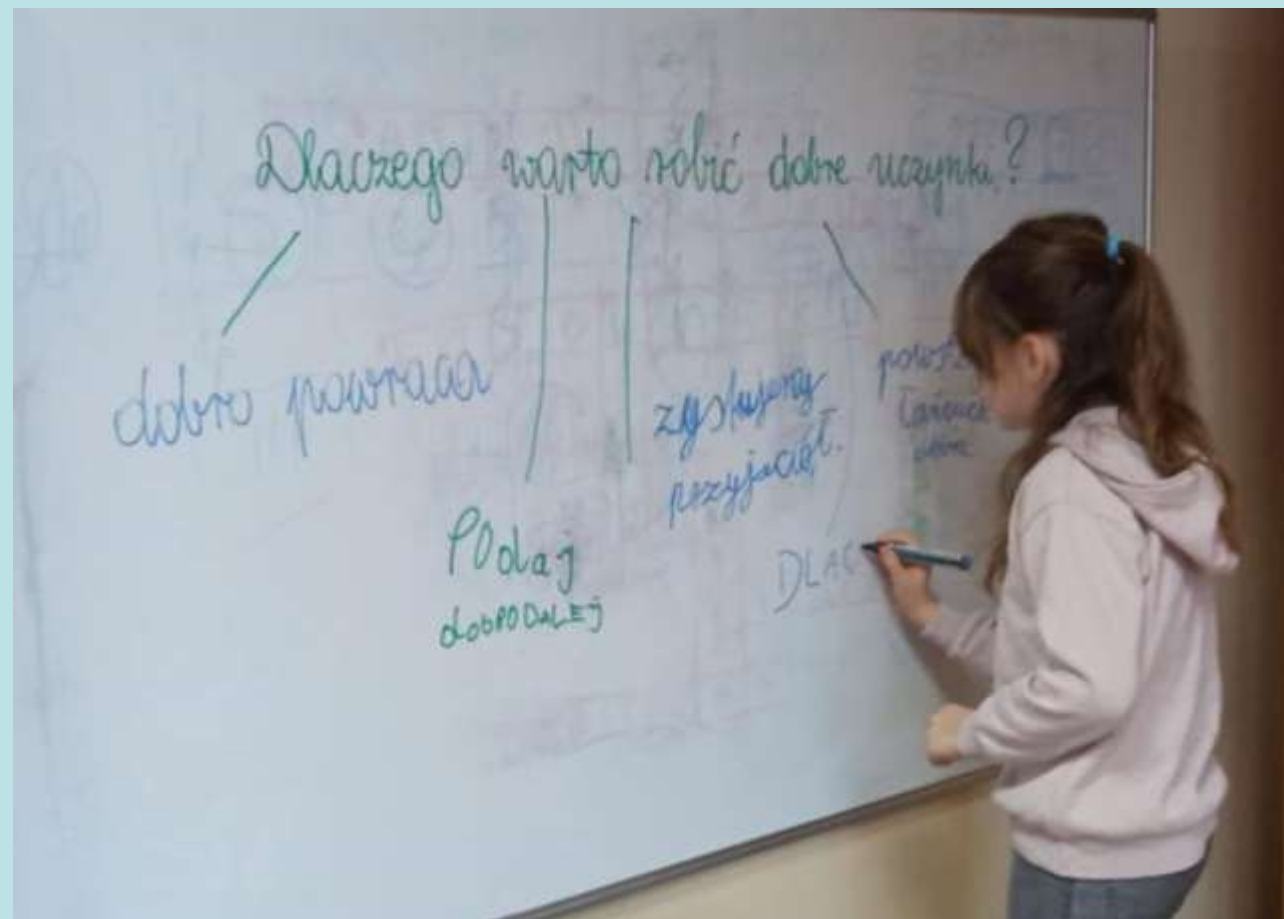 Dlaczego warto robić dobre uczynki?
dobro powraca
POdaj
dobPODALEJ
zyskujemy
przyjaciół.
DLAC